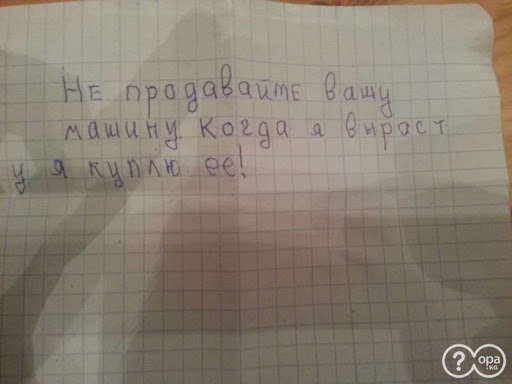 Не продавайте вашу
машину. Когда я выраст
у я куплю ее!
?
opa
KG